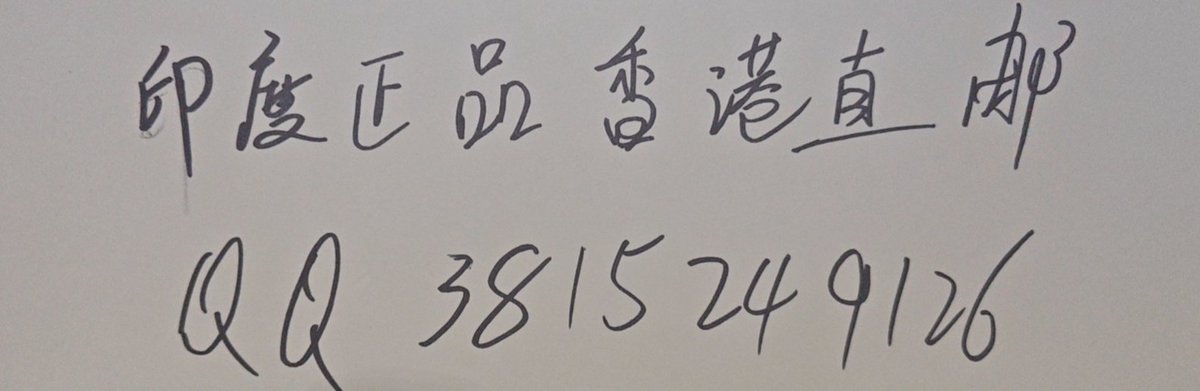 印度正品香港直邮
QQ 3815249126